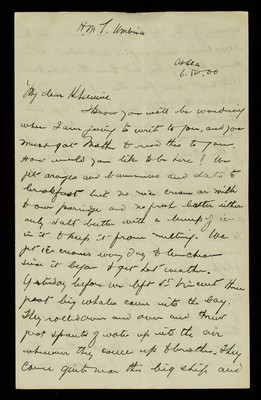 H.M.T. Umbria
At Sea
6.12.00
My dear
I know you will be wondering
when I am going to write to you, and you
must get Mother to read this to you.
How would you like to be here? We
get oranges and bananas and dates to
breakfast but no nice cream or milk
to our porridge and no fresh butter either
only salt butter with a lump of ice
in it to keep it from melting. We
get ice creams every day to luncheon
since it began to get hot weather.
Yesterday before we left St Vincent three
great big whales came into the bay.
They rolled over and over and threw
great spouts of water up into the air
whenever they came up to breathe. They
came quite near this big ship and